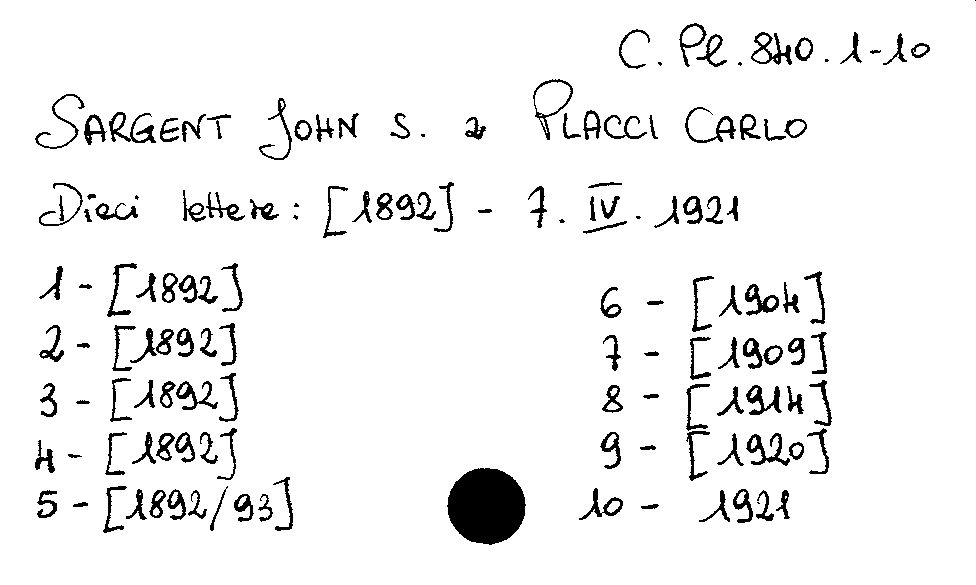 C. Pl. 840. 1-10
SARGENT JOHN S. a PLACCI CARLO
Dieci lettere: [1892] - 7. IV. 1921
1 - [1892]
2 - [1892]
3 - [1892]
4 - [1892]
5 - [1892/93]
6 - [1904]
7 - [1909]
8 - [1914]
9 - [1920]
10 - 1921